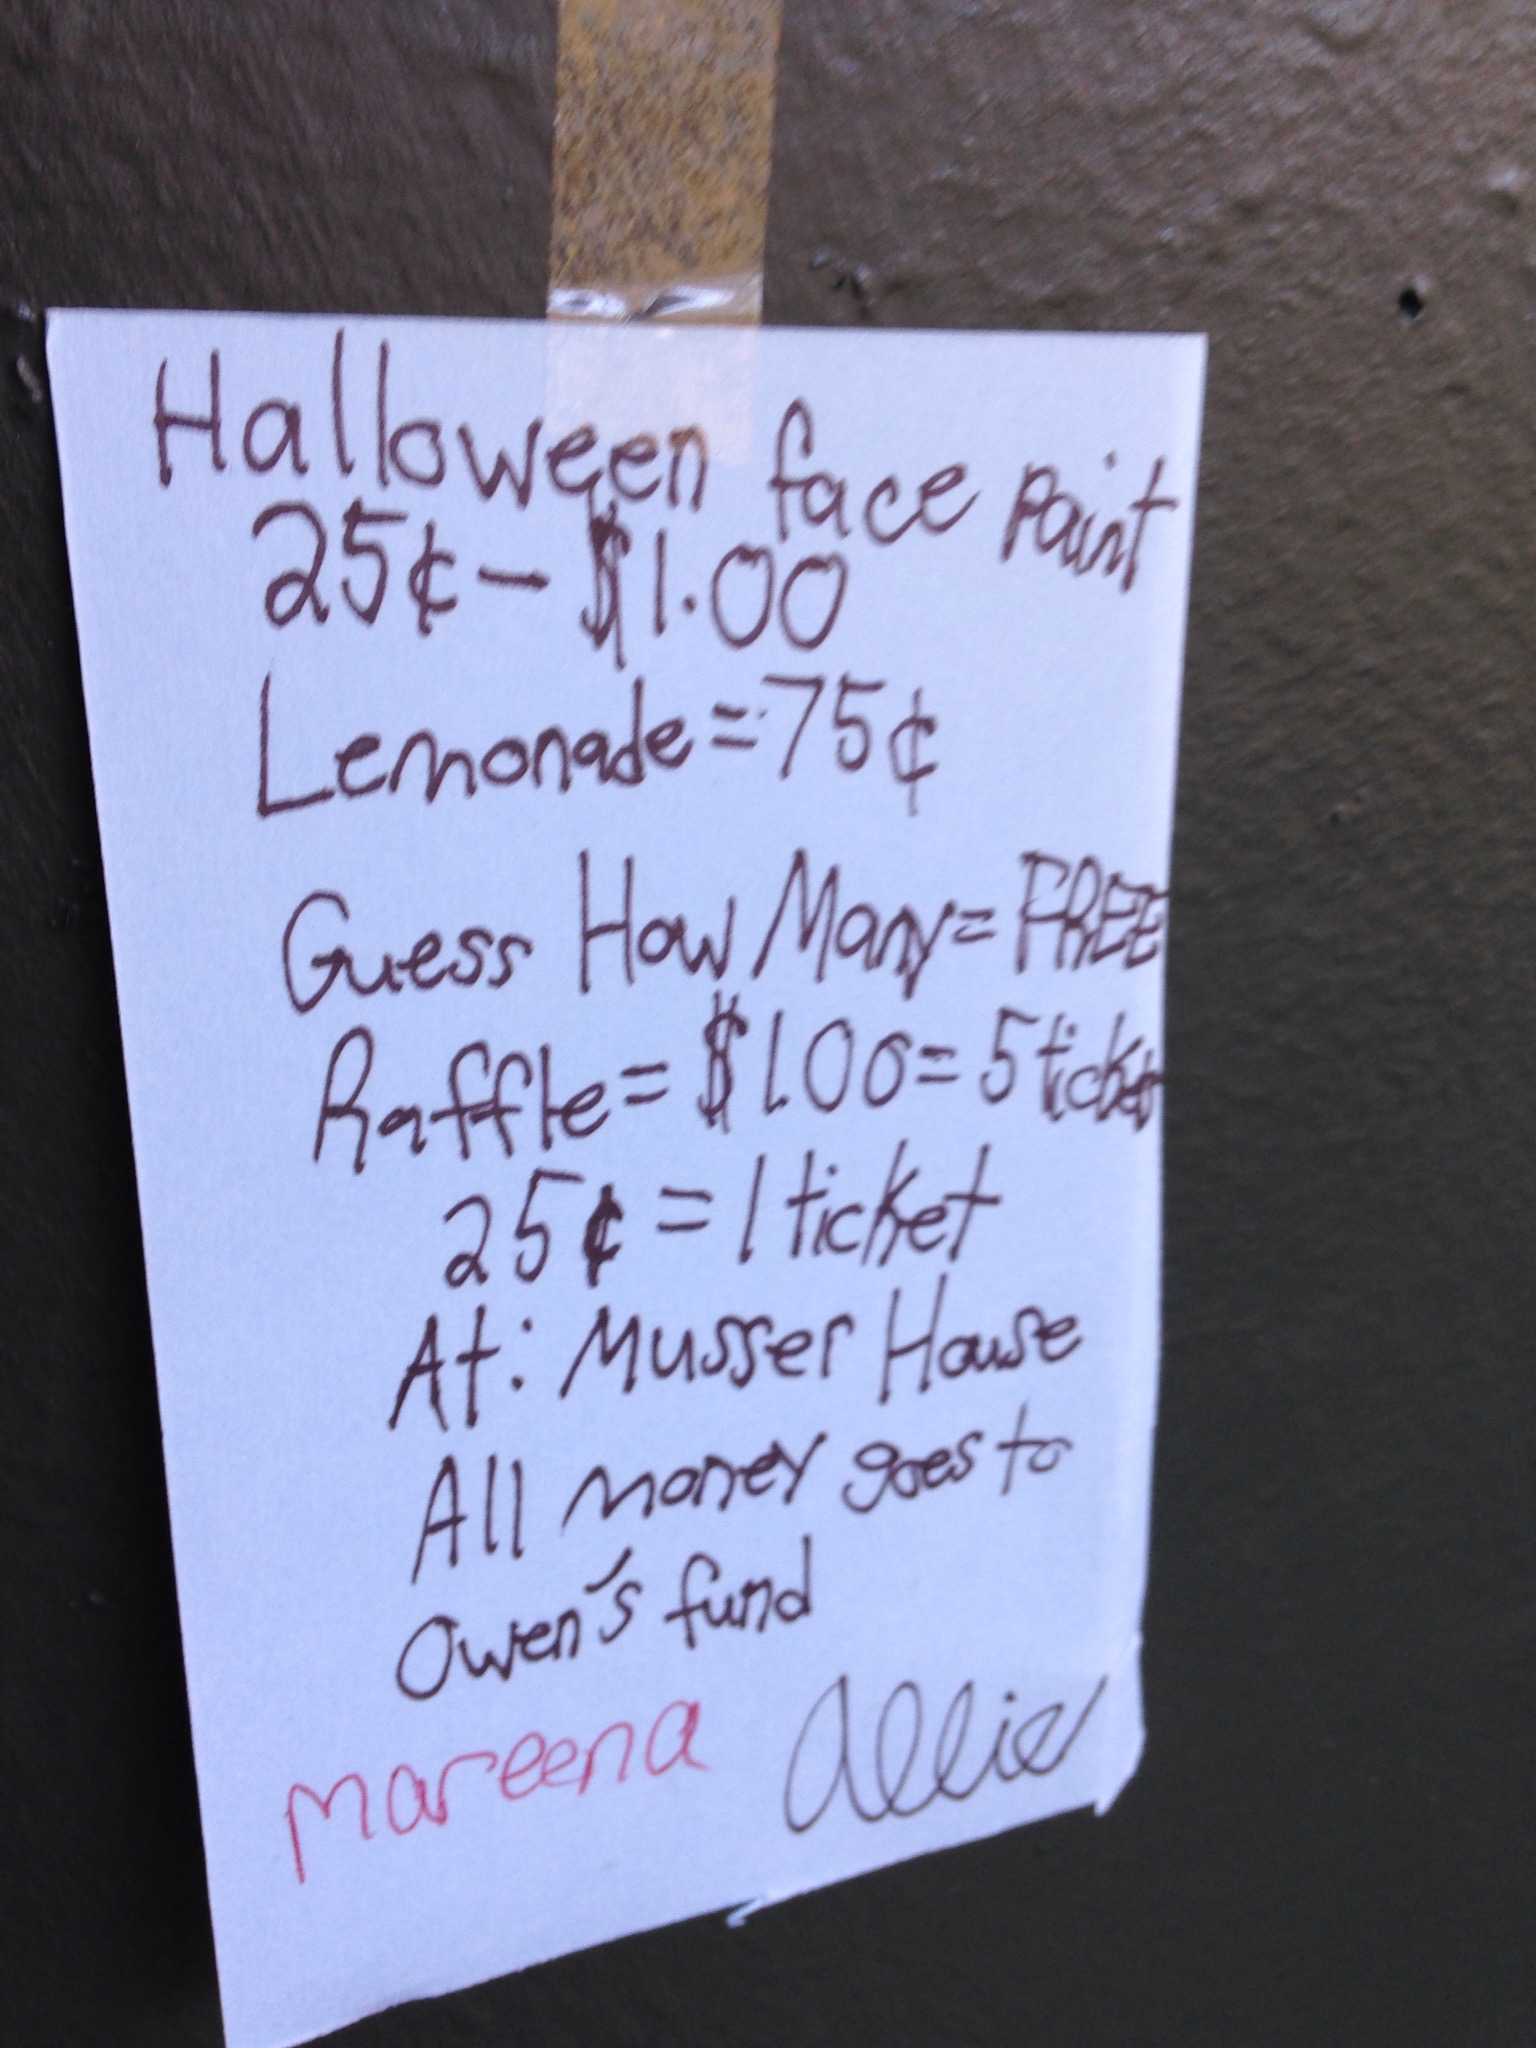 Halloween face Paint
25¢ - $1.00
Lemonade = 75¢
Guess How Many = FREE
Raffle = $1.00 = 5 tickets
25¢ = 1 ticket
At: Musser House
All money goes to
Owen's fund
mareena Allie